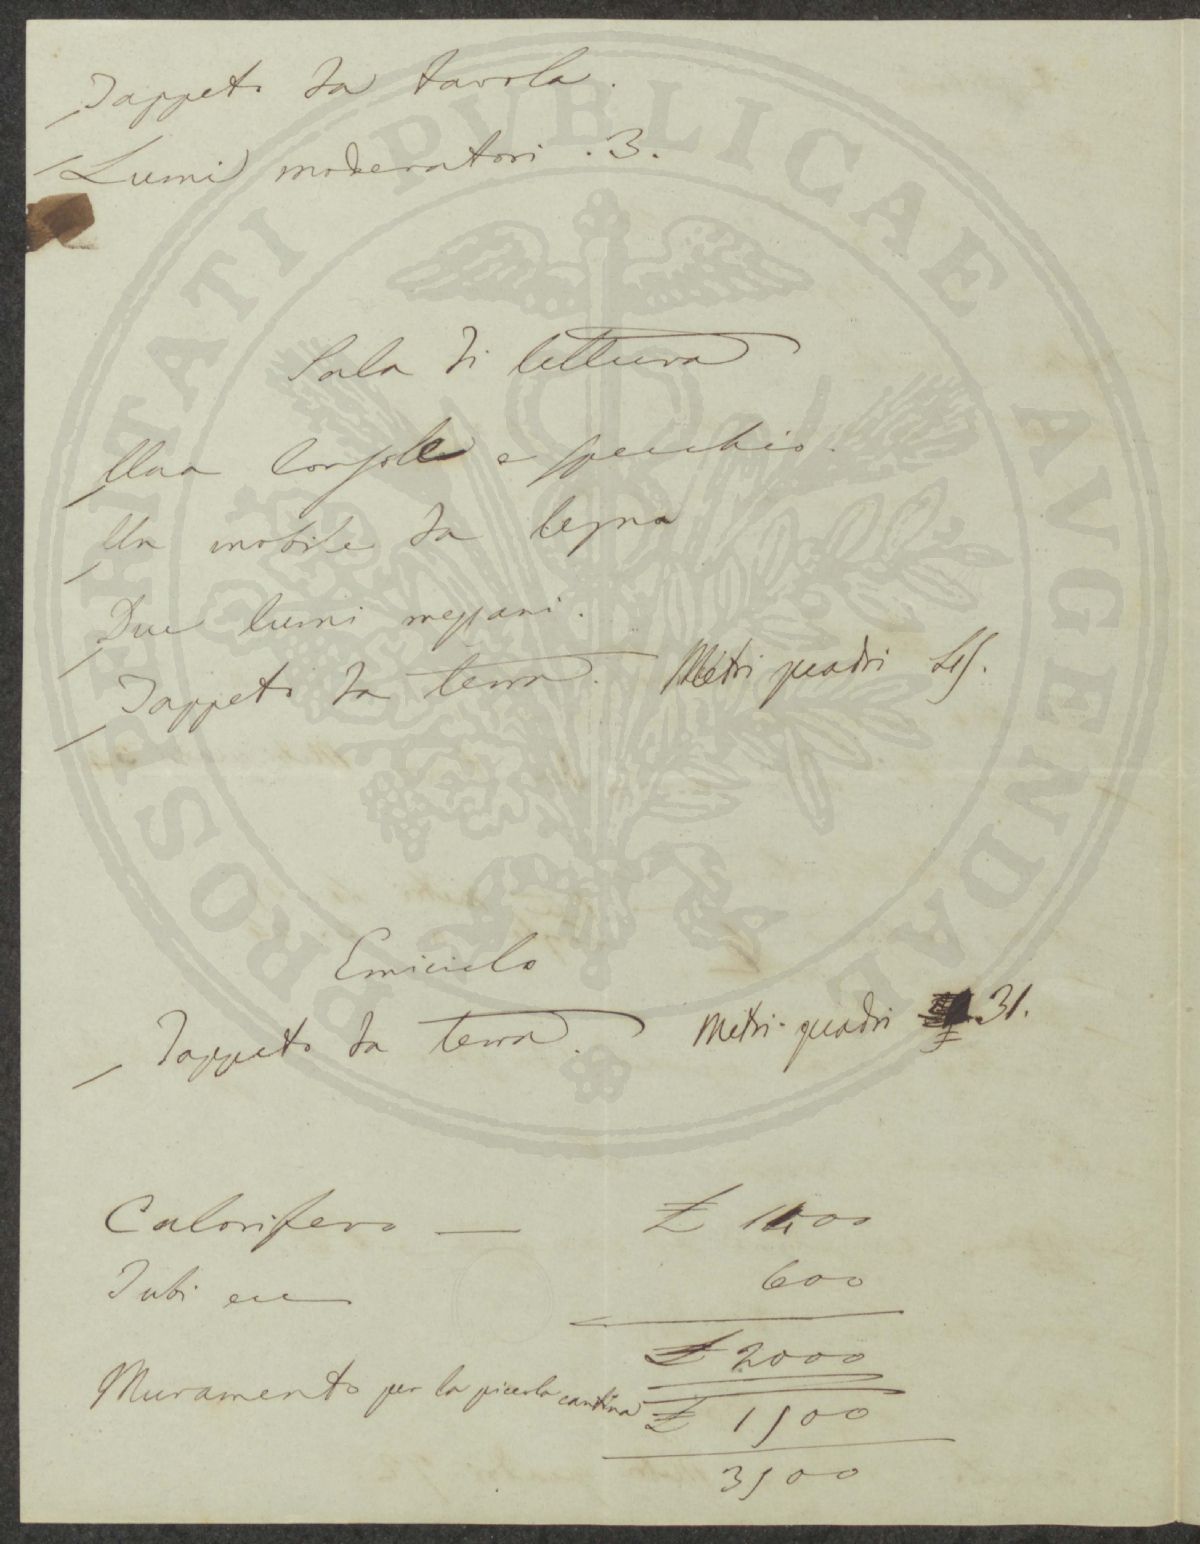 Tappeto da tavola.
Lumi moderatori . 3.
Sala di lettura
Una Consolle e specchio.
Un mobile da legna
Due lumi mezzani.
Tappeto da terra. Metri quadri 45.
Emiciclo
Tappeto da terra. Metri quadri 31.
Calorifero — £ 1400
Tubi ecc 600
£ 2000
Muramento per la piccola cantina £ 1500
3500
PROSPERITATI PVBLICAE AVGENDAE